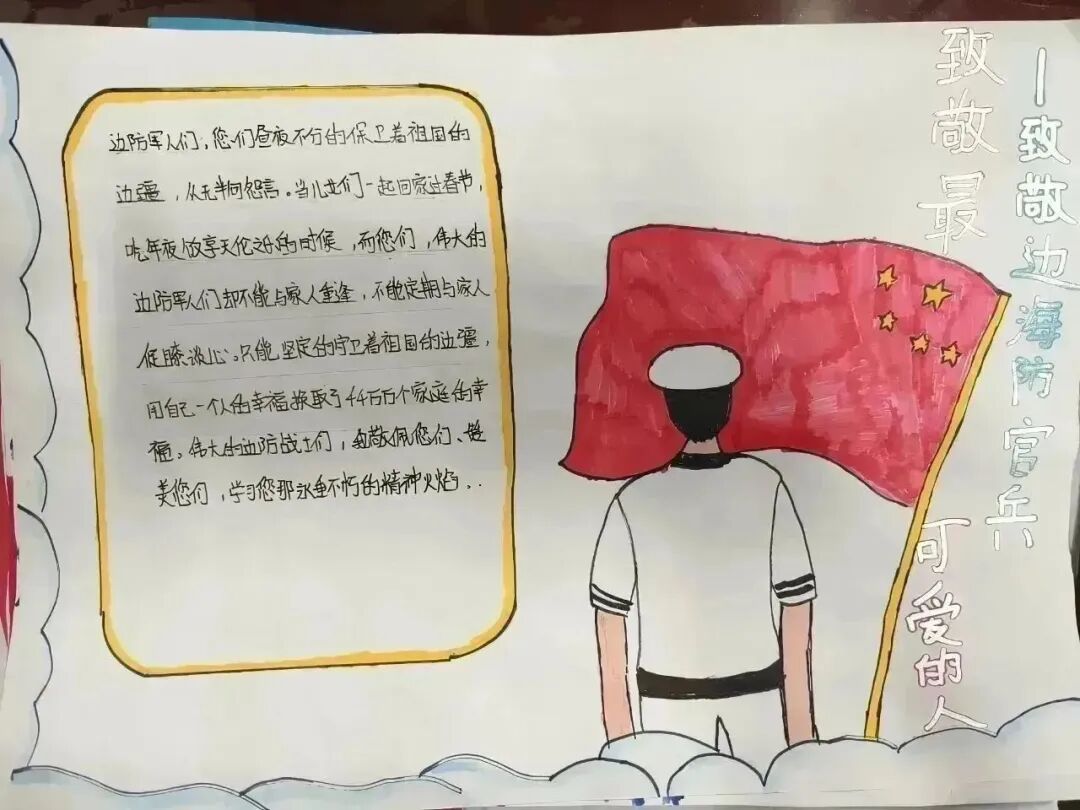 致敬最可爱的人
—致敬边海防官兵
边防军人们，您们昼夜不分的保卫着祖国的
边疆，从无半句怨言。当儿女们一起回家过春节，
吃年夜饭享天伦之乐的时候，而您们，伟大的
边防军人们却不能与家人重逢，不能定期与家人
促膝谈心。只能坚定的守卫着祖国的边疆，
用自己一个人的幸福换取了千千万万个家庭的幸
福。伟大的边防战士们，敬佩您们、赞
美您们，学习您那永垂不朽的精神火焰...